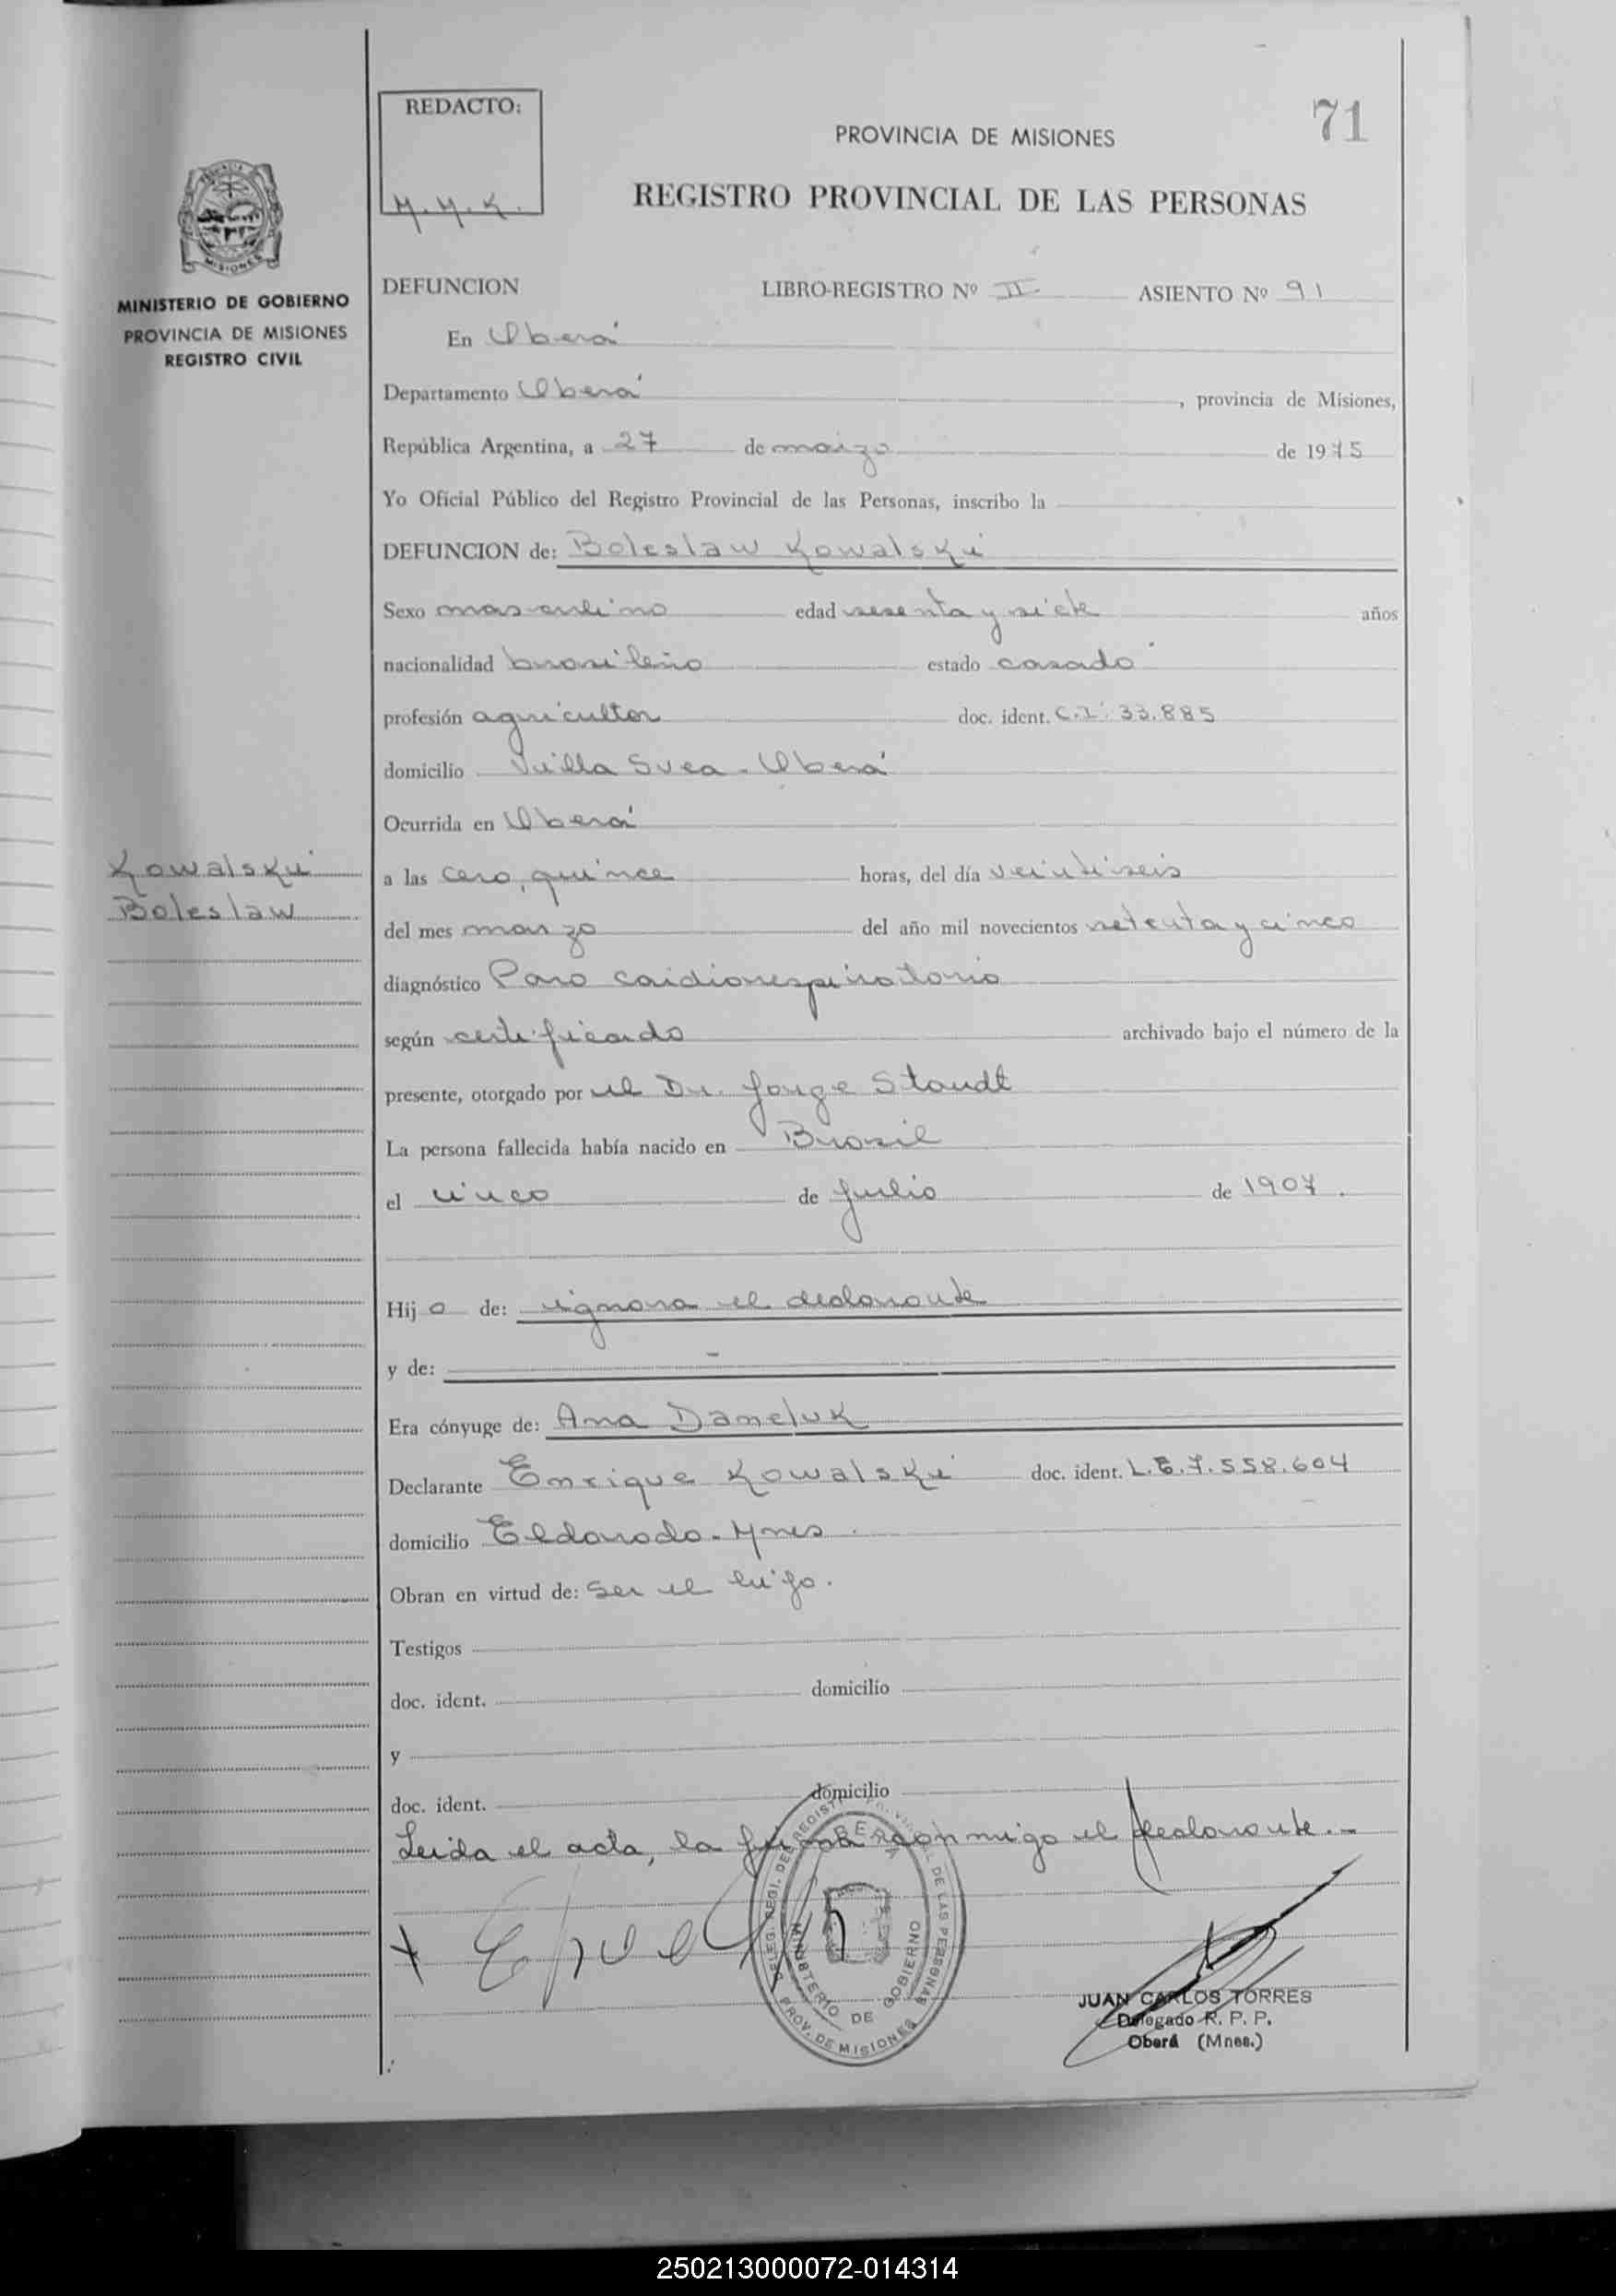 REDACTO:
M.M.K.
71
PROVINCIA DE MISIONES
REGISTRO PROVINCIAL DE LAS PERSONAS
MISIONES
MINISTERIO DE GOBIERNO
PROVINCIA DE MISIONES
REGISTRO CIVIL
DEFUNCION LIBRO-REGISTRO Nº II ASIENTO Nº 91
En Oberá
Departamento Oberá, provincia de Misiones,
República Argentina, a 27 de marzo de 1975
Yo Oficial Público del Registro Provincial de las Personas, inscribo la
DEFUNCION de: Boleslaw Kowalski
Sexo masculino edad sesenta y siete años
nacionalidad brasileño estado casado
profesión agricultor doc. ident. C.I. 33.885
domicilio Villa Svea - Oberá
Ocurrida en Oberá
Kowalski
Boleslaw
a las cero, quince horas, del día veintiseis
del mes marzo del año mil novecientos setenta y cinco
diagnóstico Paro cardiorespiratorio
según certificado archivado bajo el número de la
presente, otorgado por el Dr. Jorge Staudt
La persona fallecida había nacido en Brasil
el cinco de julio de 1907.
Hijo de: ignora el declarante
y de: -
Era cónyuge de: Ana Daneluk
Declarante Enrique Kowalski doc. ident. L.E.7.558.604
domicilio Eldorado - Mnes.
Obran en virtud de: Ser el hijo.
Testigos
doc. ident. domicilio
y
doc. ident. domicilio
Leida el acta, la firma conmigo el declarante.-
MINISTERIO DE GOBIERNO
PROV. DE MISIONES
JUAN CARLOS TORRES
Delegado R. P. P.
Oberá (Mnes.)
250213000072-014314